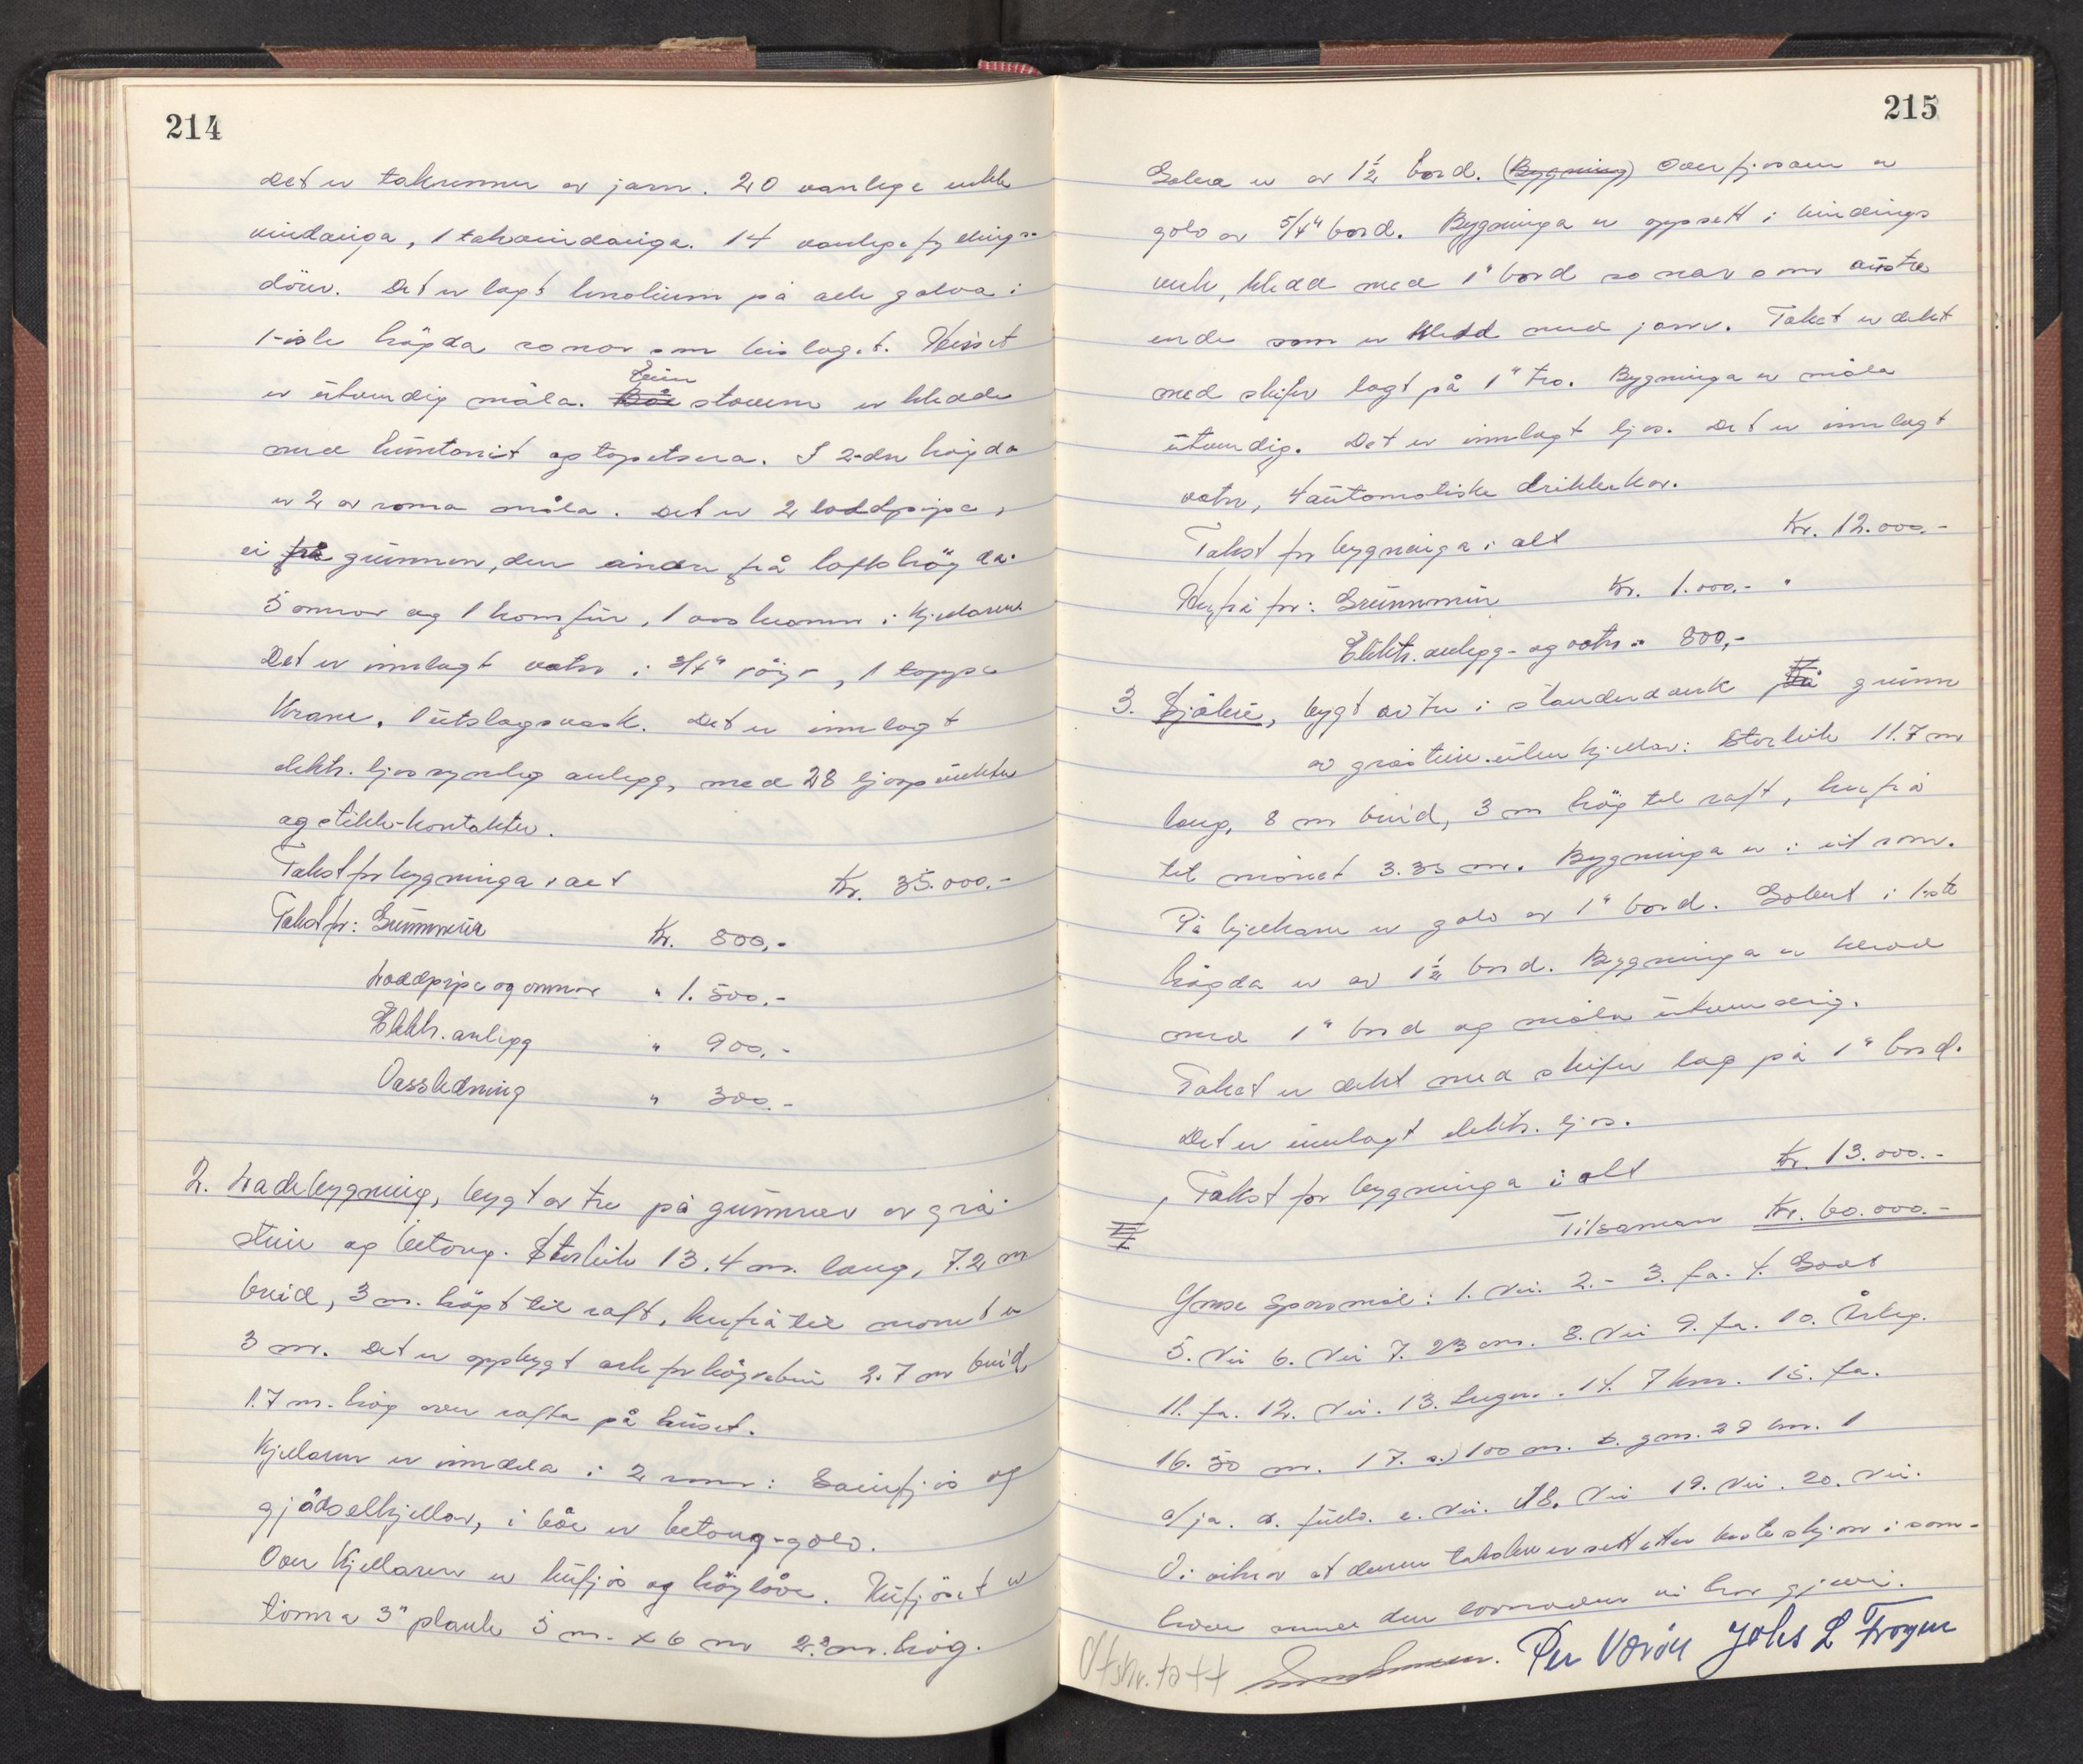 214
Det er takrennur av jarn. 20 vanlege enkle
vindauga, 1 takvindauga. 14 vanlege fyllings-
dörer. Det er lagt linolium på alle golva i
1-ste högda so nær som bislaget. Huset
er utvendig måla. Ein stovene er kledde
med huntonit og tapetsera. I 2-dre högda
er 2 av roma måla. Det er 2 loddpipe,
ei frå grunnen, den andre frå loftshögda.
5 omnar og 1 komfur, 1 i kjellaren.
Det er innlagt vatn i 3/4" röyr, 1 tappe
krane, 1 utslagsvask. Det er innlagt
elektr. ljos synleg anlegg, med 28 ljospunkter
og stikk-kontakter.
Takst for bygninga i alt Kr. 35.000.-
Takst for: Grunnmur Kr. 800,-
Loddpipe og omnar " 1.500,-
Elektr. anlegg " 900,-
Vassledning " 300.-
2. Ladebygning, bygt av tre på grunnmur av grå-
stein og betong. Storleik 13.4 m. lang, 7.2 m
breid, 3 m. högt til raft, herfrå til mönet er
3 m. Det er oppbygt ark for höyrebru 2.7 m breid,
1.7 m. hög over rafta på huset.
Kjellaren er inndela i 2 rom: Sauefjös og
gjödselkjellar, i båe er betong-golv.
Over kjellaren er kufjös og höylöve. Kufjöset er
tömra 3" plank 5 m. x 6 m 2.2 m. hög.
215
Golva er av 1 1/2 bord. (Bygning) Over fjosen er
golv av 5/4" bord. Bygninga er oppsett i bindings
verk, kledd med 1" bord so nær som austre
ende som er kledd med jarn. Taket er dekt
med skifer lagt på 1" tro. Bygninga er måla
utvendig. Det er innlagt ljos. Det er innlagt
vatn, 4 automatiske drikkekar.
Takst for bygninga i alt Kr. 12.000.-
Herfrå for: Grunnmur Kr. 1.000.-
Elektr. anlegg- og vatn " 800,-
3. Sjöbu, bygt av tre i standerverk på grunn
av gråstein uten kjellar: Storleik 11.7 m
lang, 8 m breid, 3 m hög til raft, herfrå
til mönet 3.35 m. Bygninga er i eit rom.
På bjelkane er golv av 1" bord. Golvet i 1-ste
högda er av 1 1/2 bord. Bygninga er kledd
med 1" bord og måla utvendig.
Taket er dekt med skifer lag på 1" bord.
Det er innlagt elektr. ljos.
Takst for bygninga i alt Kr. 13.000.-
Tilsaman Kr. 60.000.-
Ymse Spørsmål: 1. Nei. 2. - 3. Ja. 4. Godt
5. Nei 6. Nei 7. 23 m. 8. Nei 9. Ja. 10. Årleg.
11. Ja. 12. Nei. 13. Ingen. 14. 7 km. 15. Ja.
16. 50 m. 17. a) 100 m. b. 29
c/ja. d. fullt. e. Nei. 18. Nei 19. Nei. 20. Nei.
Vi vitnar at denne taksten er sett etter beste skjön i sam-
hove med den lovnaden vi har gjevi.
Utskr. tatt Per Johs L Froyen